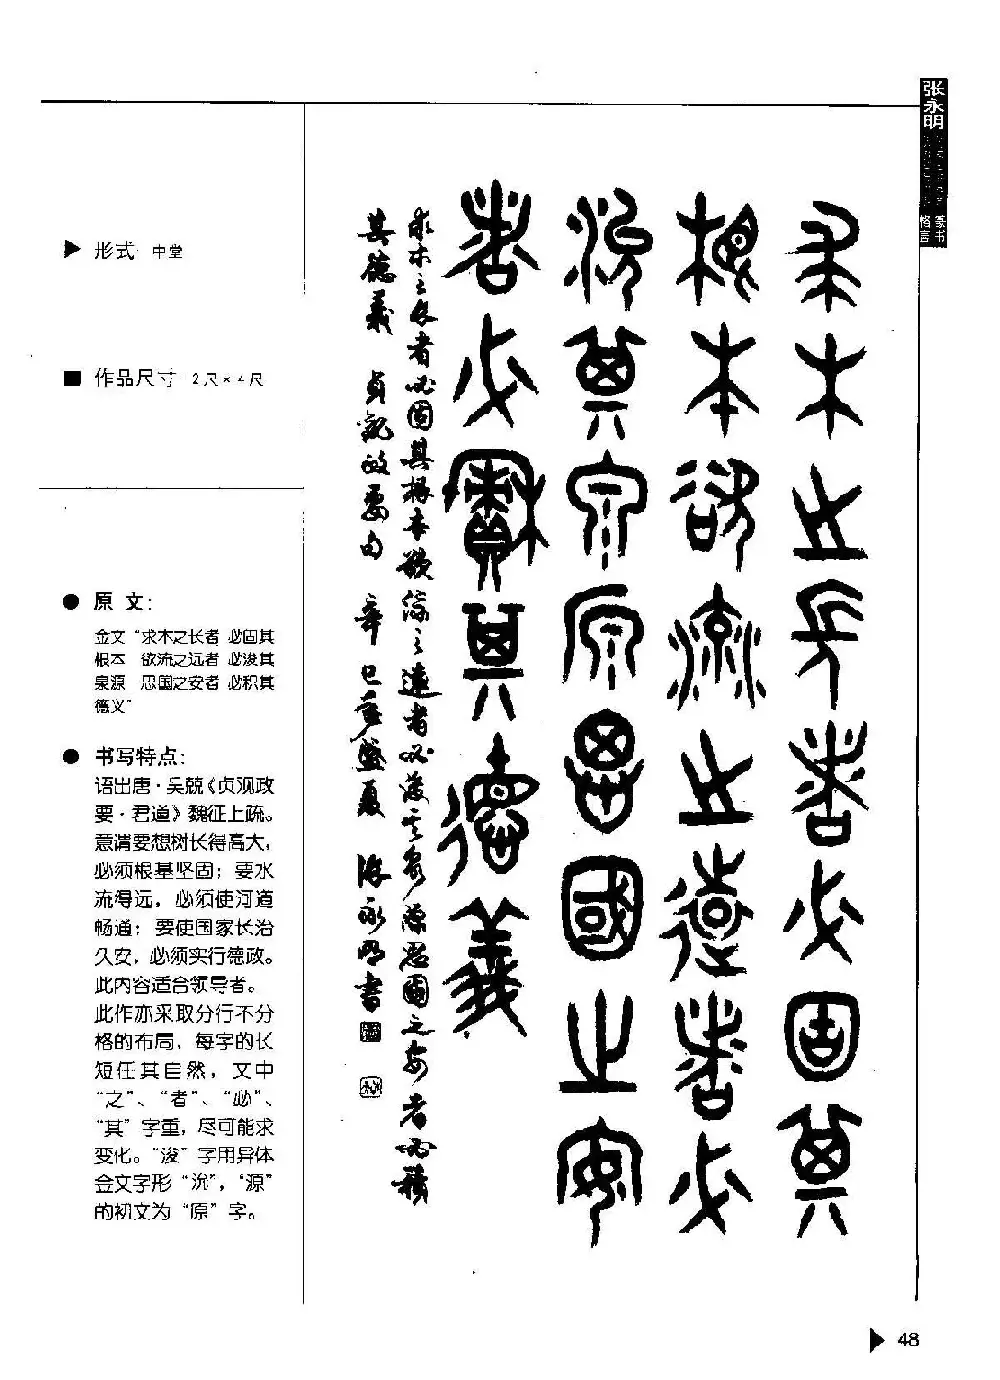 张永明
篆书
格言
求木之长者必固其
根本欲流之远者必
浚其泉原思国之安
者必积其德义
求木之长者必固其根本欲流之远者必浚其泉源思国之安者必積
其德義 貞觀政要句 辛巳年盛夏 张永明書
▶ 形式: 中堂
■ 作品尺寸 2尺×4尺
● 原 文:
金文“求木之长者 必固其
根本 欲流之远者 必浚其
泉源 思国之安者 必积其
德义”
● 书写特点:
语出唐·吴兢《贞观政
要·君道》魏征上疏。
意谓要想树长得高大,
必须根基坚固; 要水
流得远, 必须使河道
畅通; 要使国家长治
久安, 必须实行德政。
此内容适合领导者。
此作亦采取分行不分
格的布局, 每字的长
短任其自然, 文中
“之”、“者”、“必”、
“其”字重, 尽可能求
变化。“浚”字用异体
金文字形“㳂”, “源”
的初文为“原”字。
▶ 48